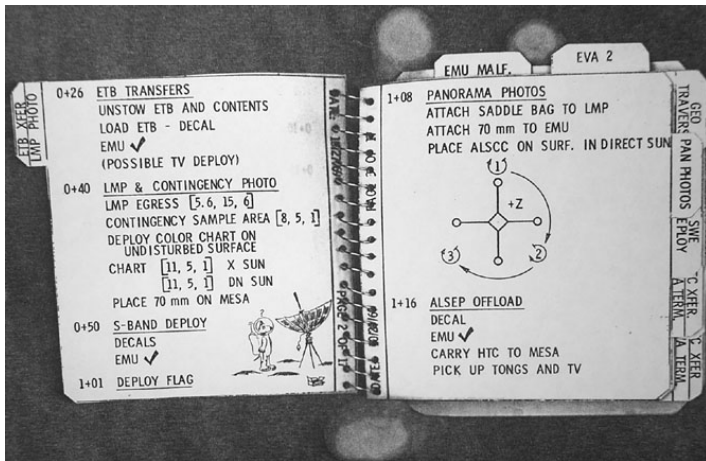 ETB XFER
LMP PHOTO
0+26 ETB TRANSFERS
UNSTOW ETB AND CONTENTS
LOAD ETB - DECAL
EMU ✓
(POSSIBLE TV DEPLOY)
0+40 LMP & CONTINGENCY PHOTO
LMP EGRESS [5.6, 15, 6]
CONTINGENCY SAMPLE AREA [8, 5, 1]
DEPLOY COLOR CHART ON
UNDISTURBED SURFACE
CHART [11, 5, 1] X SUN
[11, 5, 1] DN SUN
PLACE 70 mm ON MESA
0+50 S-BAND DEPLOY
DECALS
EMU ✓
1+01 DEPLOY FLAG
DATE
PAGE 2 OF 17
EMU MALF.
EVA 2
1+08 PANORAMA PHOTOS
ATTACH SADDLE BAG TO LMP
ATTACH 70 mm TO EMU
PLACE ALSCC ON SURF. IN DIRECT SUN
1
+Z
2
3
1+16 ALSEP OFFLOAD
DECAL
EMU ✓
CARRY HTC TO MESA
PICK UP TONGS AND TV
GEO
TRAVERS
PAN PHOTOS
SWE
EPLOY
C XFER
A TERM.
C XFER
A TERM.